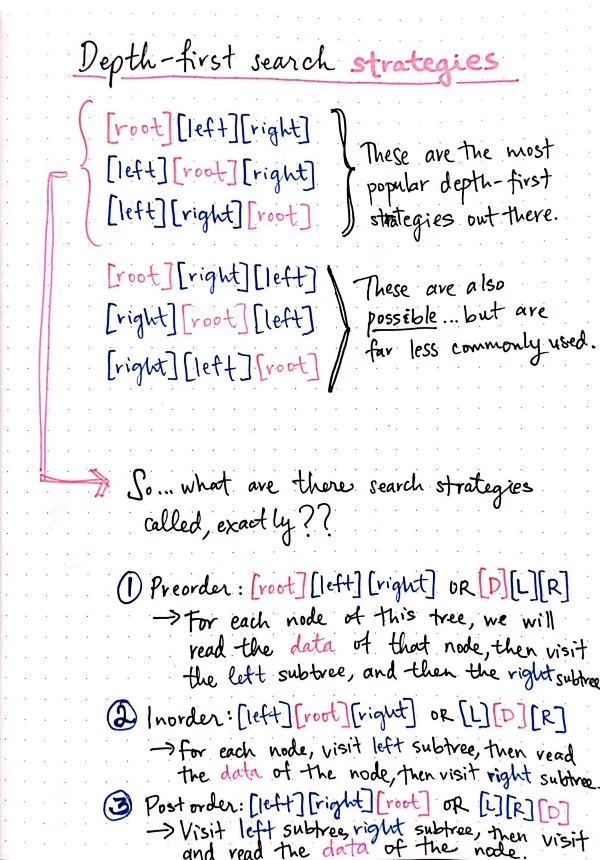 Depth-first search strategies
[root][left][right]
[left][root][right]
[left][right][root]
These are the most
popular depth-first
strategies out there.
[root][right][left]
[right][root][left]
[right][left][root]
These are also
possible...but are
far less commonly used.
So... what are there search strategies
called, exactly??
① Preorder: [root][left][right] OR [D][L][R]
→ For each node of this tree, we will
read the data of that node, then visit
the left subtree, and then the right subtree
② Inorder: [left][root][right] OR [L][D][R]
→ For each node, visit left subtree, then read
the data of the node, then visit right subtree.
③ Post order: [left][right][root] OR [L][R][D]
→ Visit left subtree, right subtree, then visit
and read the data of the node.